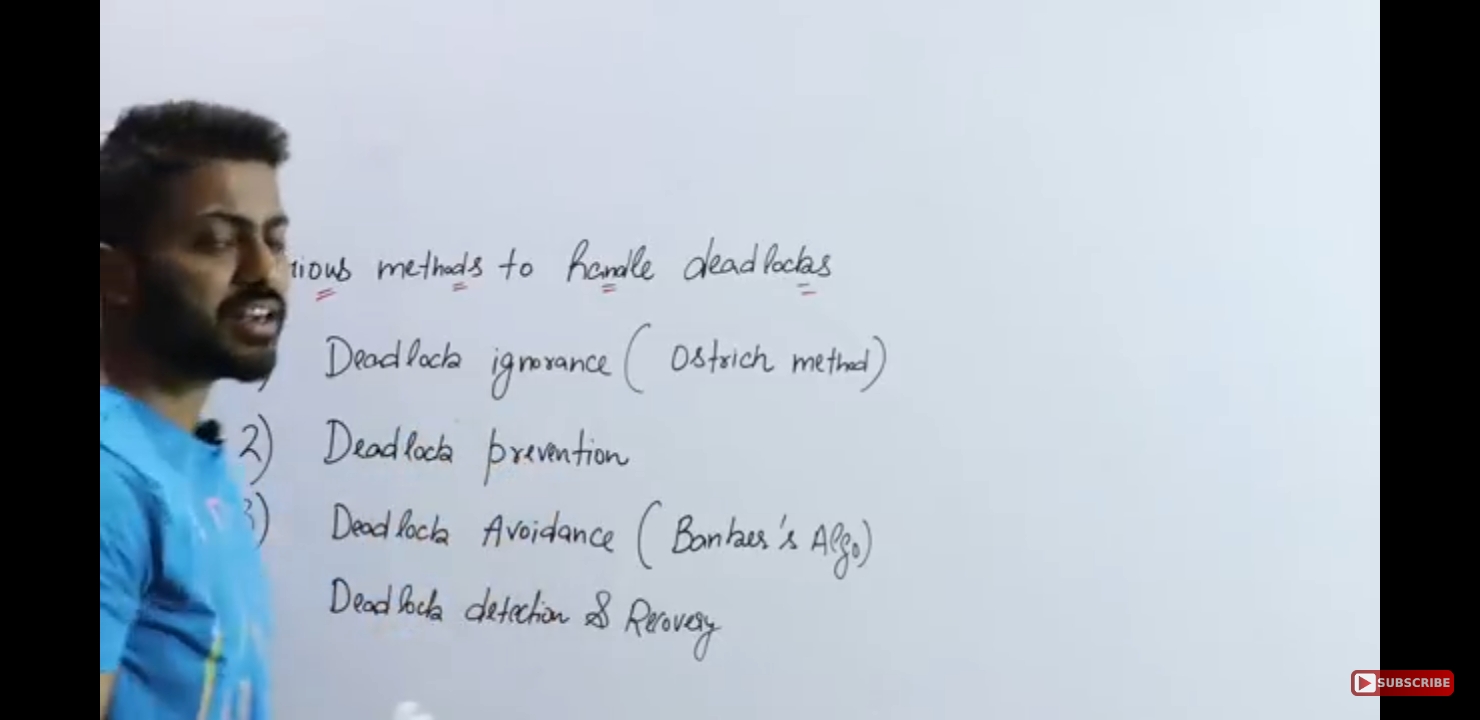 methods to handle deadlocks
Deadlock ignorance ( Ostrich method)
2) Deadlock prevention
3) Deadlock Avoidance ( Banker's Algo)
Deadlock detection & Recovery
SUBSCRIBE